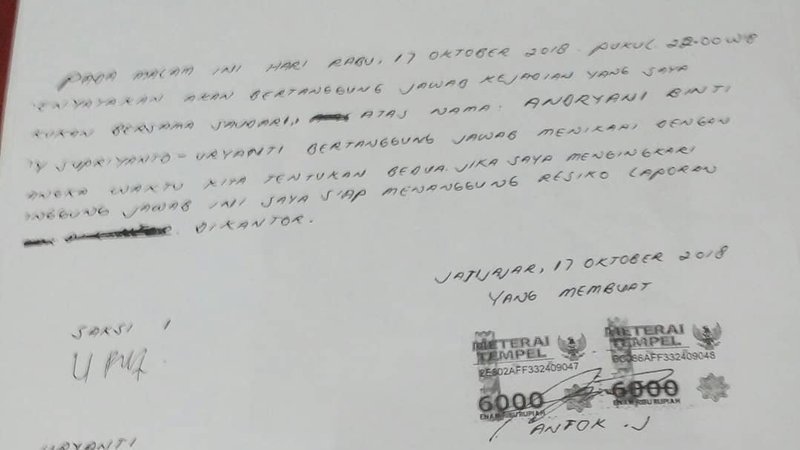 PADA MALAM INI HARI RABU, 17 OKTOBER 2018. PUKUL 22.00 WB
ENYATAKAN AKAN BERTANGGUNG JAWAB KEJADIAN YANG SAYA
KUKAN BERSAMA SAUDARI, ATAS NAMA. ANDRYANI BINTI
SUPRIYANTO - URYANTI BERTANGGUNG JAWAB MENIKAHI DENGEN
ANGKA WAKTU KITA TENTUKAN BEDUA. JIKA SAYA MENGINGKARI
NGGUNG JAWAB INI SAYA SIAP MENANGGUNG RESIKO LAPORAN
DIKANTOR.
JATIJAJAR, 17 OKTOBER 2018
YANG MEMBUAT
SAKSI 1
METERAI TEMPEL
METERAI TEMPEL
6000
ENAM RIBU RUPIAH
6000
ENAM RIBU RUPIAH
ANTOK . J
URYANTI